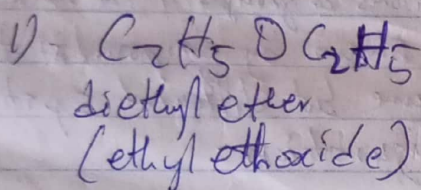 1) - C₂H₅OC₂H₅
diethyl ether
(ethyl ethoxide)